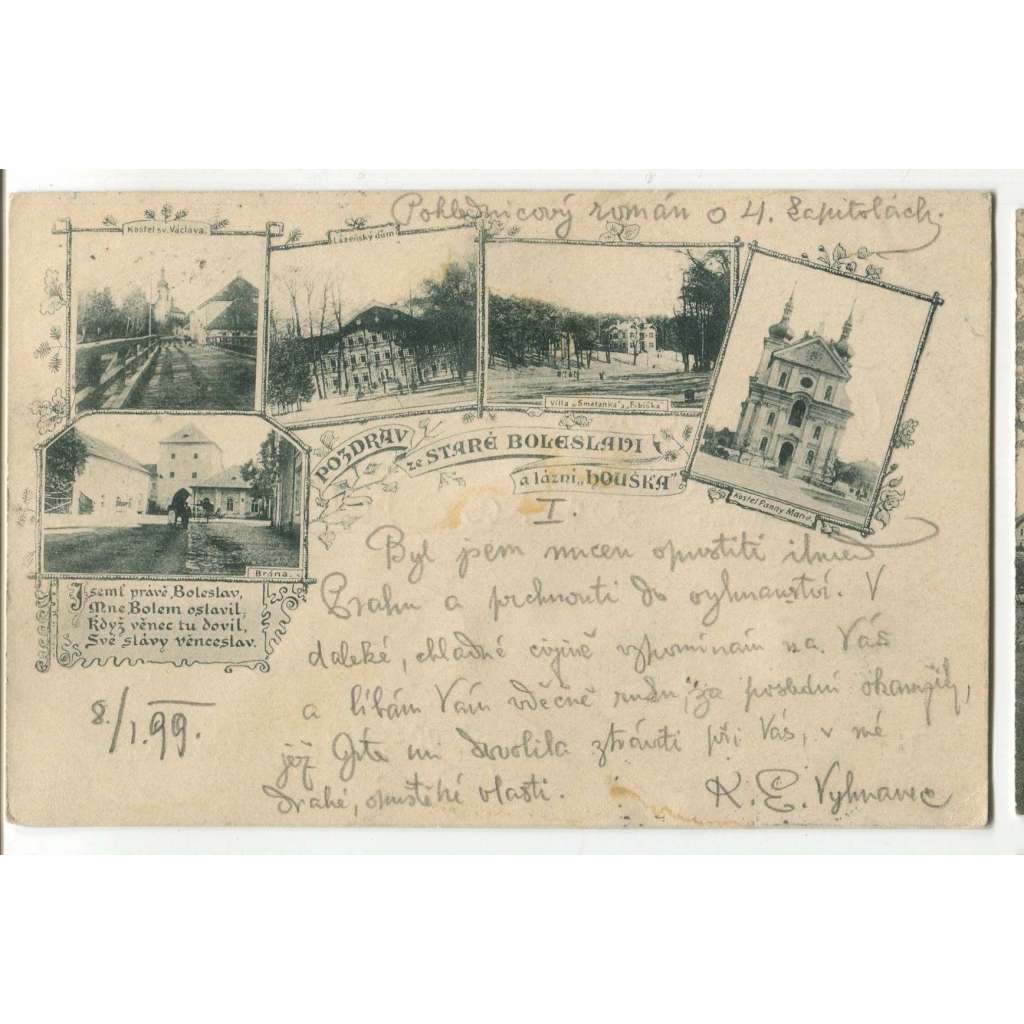 Pohlednicový román o 4. kapitolách.
Kostel sv. Václava.
Lázeňský dům
Villa „Smetanka“ a „Fibiška“
Kostel Panny Marie
Brána.
POZDRAV
ze STARÉ BOLESLAVI
a lázní „HOUŠKA“
Jsemť právě Boleslav,
Mne Bolem oslavil,
Když věnec tu dovil,
Své slávy věnceslav.
I.
Byl jsem nucen opustiti
Prahu a prchnouti do vyhnanství. V
daleké, chladné cizině vzpomínám na Vás
a líbám Vám vděčně ruku, za poslední okamžik,
jež jste mi dovolila ztráviti při Vás, v mé
drahé, opuštěné vlasti.
K. E. Vyhnanec
8./I.99.